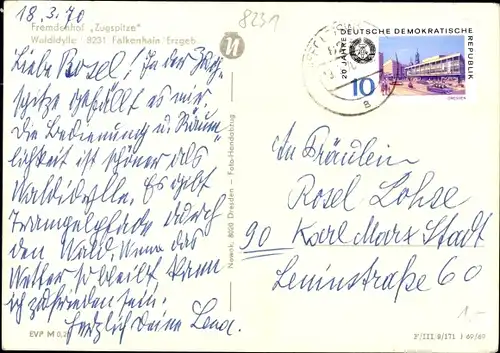 18.3.70
8231
Fremdenhof „Zugspitze"
Waldidylle · 8231 Falkenhain/Erzgeb.
Liebe Rosel! In der Zug-
spitze gefällt es mir.
Die Bedienung u. Räum-
lichkeit ist schöner als
Waldidylle. Es gibt
durch
den Wald. Wenn das
Wetter so bleibt kann
ich zufrieden sein.
Herzlich Deine Lena.
EVP M 0,20
Nowak, 8000 Dresden – Foto-Handabzug
20 JAHRE DEUTSCHE DEMOKRATISCHE REPUBLIK
10
DRESDEN
a
An Fräulein
Rosel Lohse
90 Karl Marx Stadt
Leninstraße 60
1,-
P/III/8/171 | 69/69